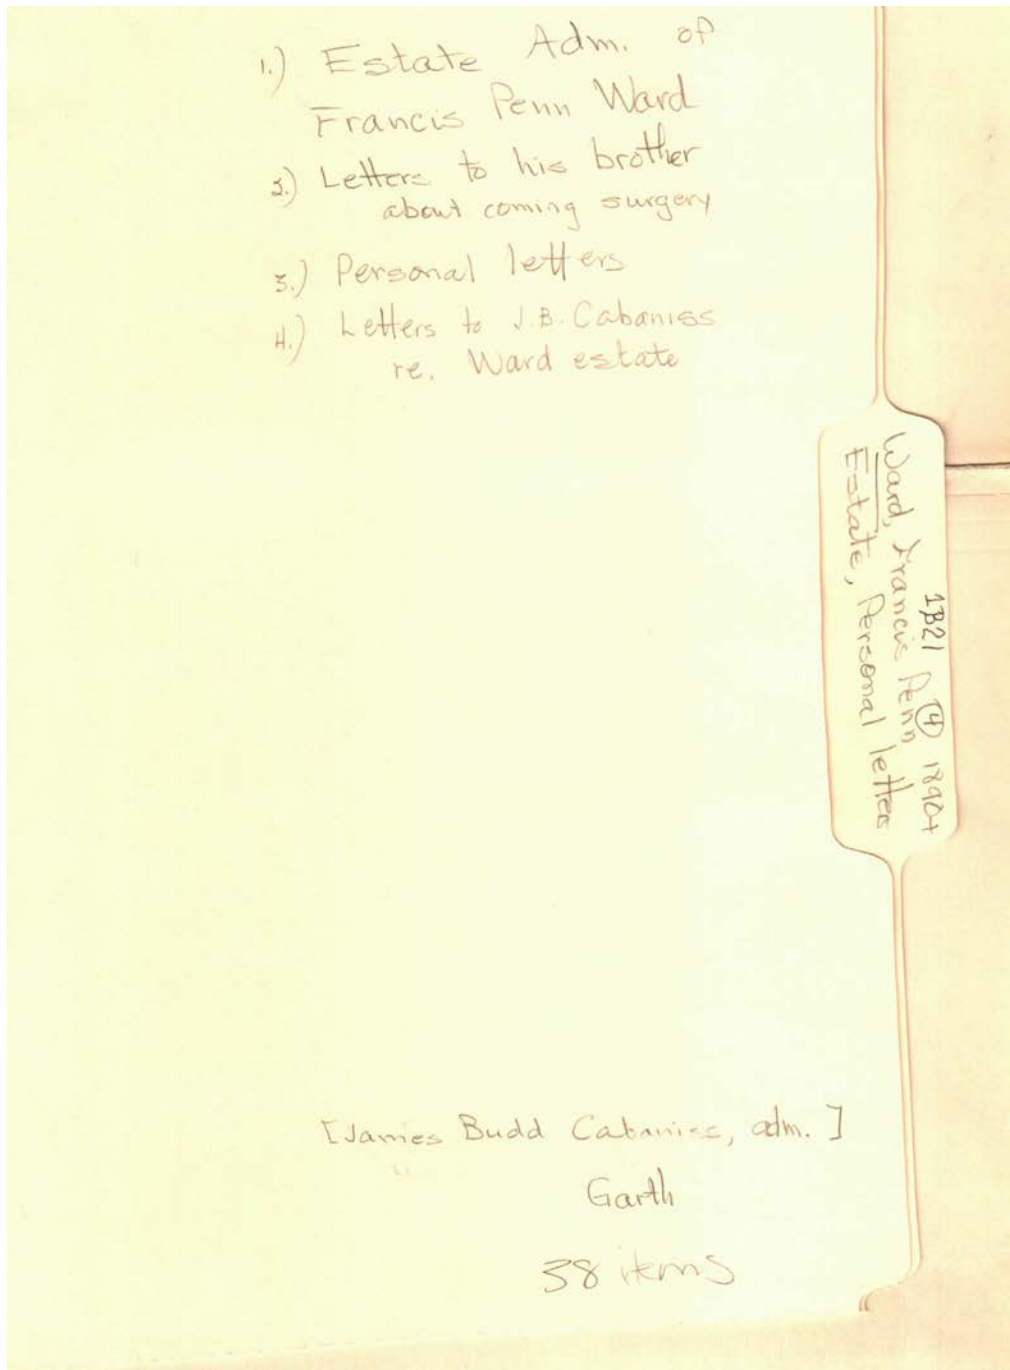 1.) Estate Adm. of
Francis Penn Ward
2.) Letters to his brother
about coming surgery
3.) Personal letters
4.) Letters to J.B. Cabaniss
re. Ward estate
1B21 4
Ward, Francis Penn 1890+
Estate, Personal letters
[James Budd Cabaniss, adm.]
Garth
38 items